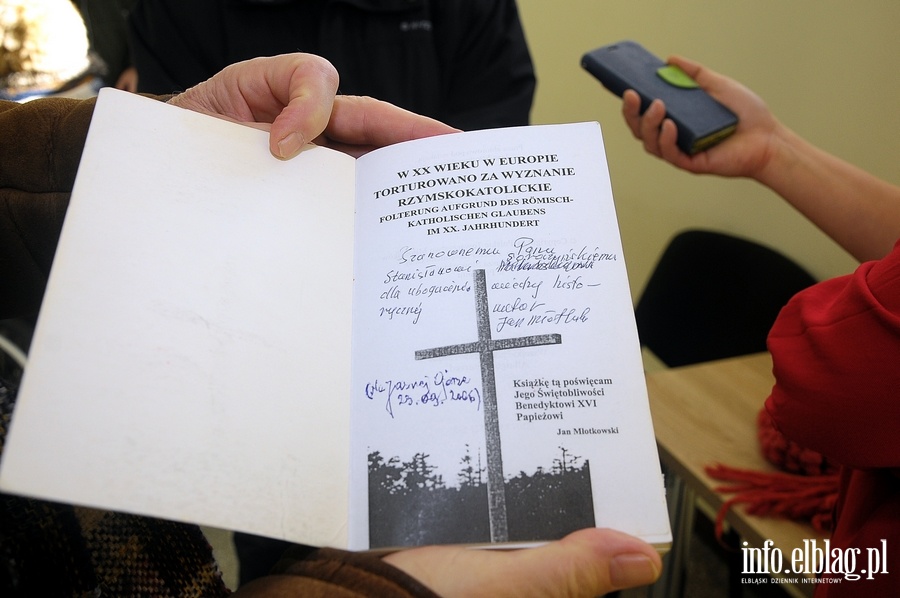 W XX WIEKU W EUROPIE
TORTUROWANO ZA WYZNANIE
RZYMSKOKATOLICKIE
FOLTERUNG AUFGRUND DES RÖMISCH-
KATHOLISCHEN GLAUBENS
IM XX. JAHRHUNDERT
Szanownemu Panu
Stanisławowi
dla ubogacenia wiedzy histo-
rycznej autor
Jan Młotkowski
(Na Jasnej Górze
23.09.2006)
Książkę tą poświęcam
Jego Świętobliwości
Benedyktowi XVI
Papieżowi
Jan Młotkowski
info.elblag.pl
ELBLĄSKI DZIENNIK INTERNETOWY